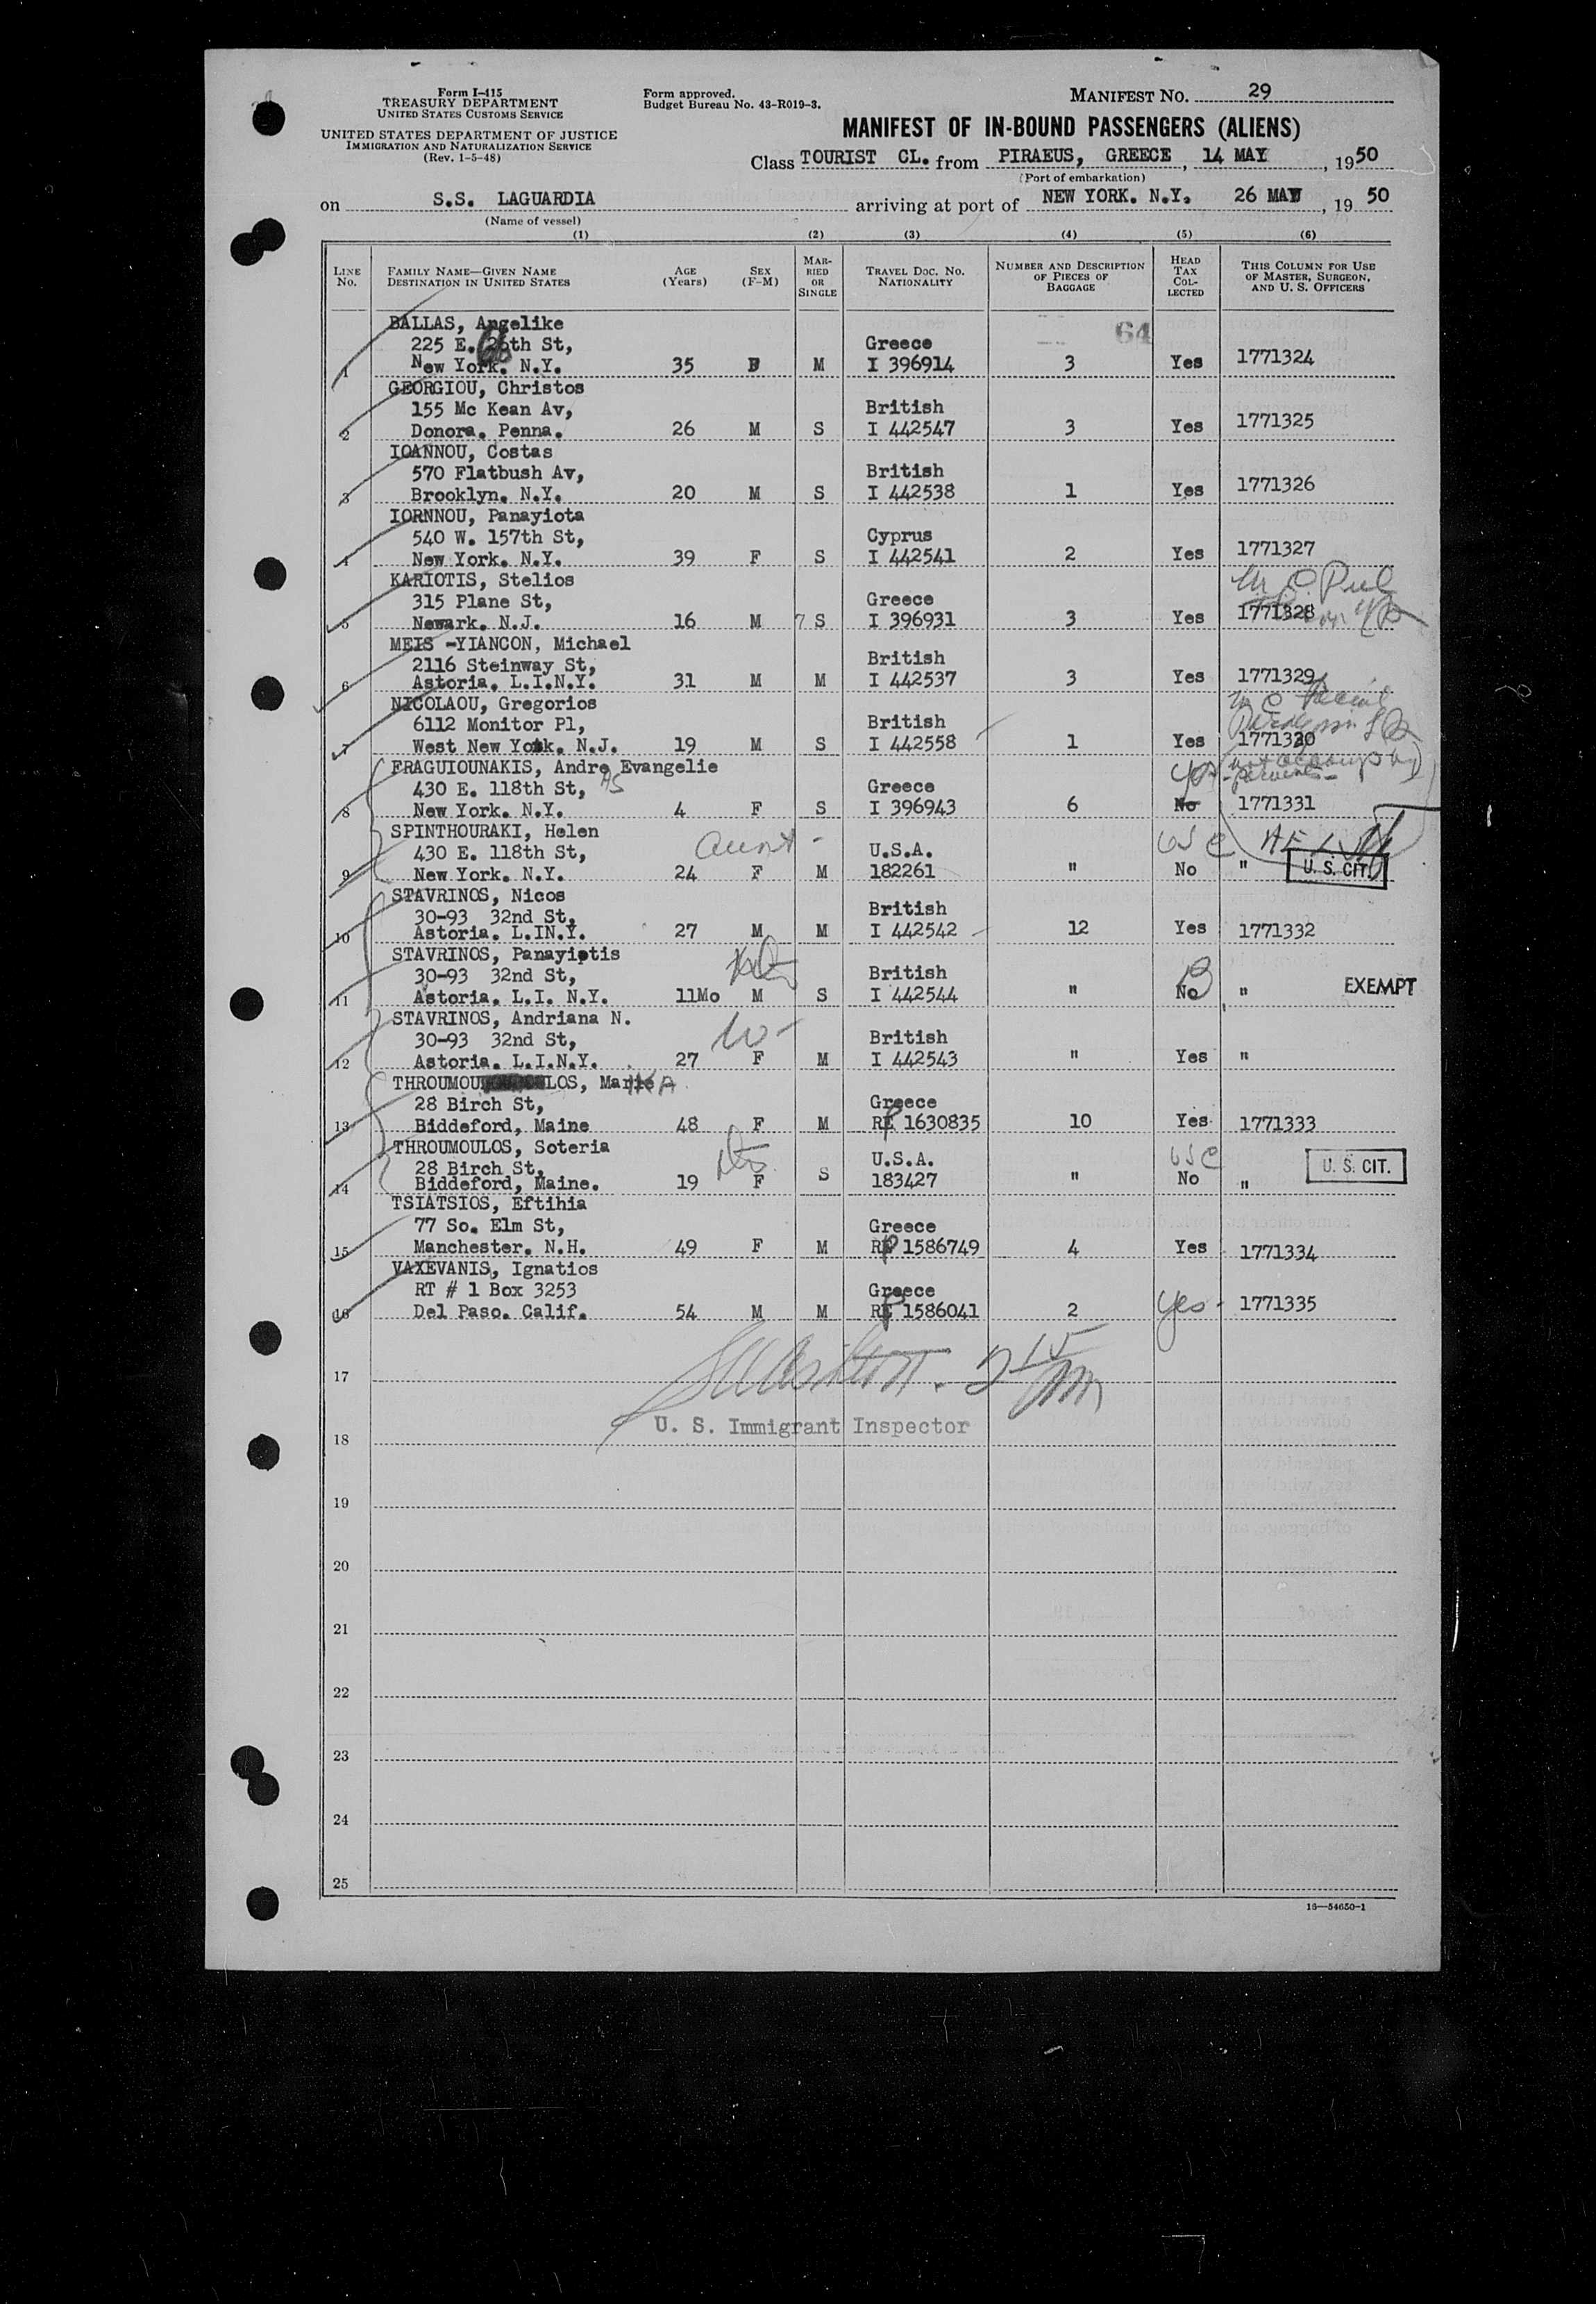 Form I-415
TREASURY DEPARTMENT
UNITED STATES CUSTOMS SERVICE
UNITED STATES DEPARTMENT OF JUSTICE
IMMIGRATION AND NATURALIZATION SERVICE
(Rev. 1-5-48)
Form approved.
Budget Bureau No. 43-R019-3.
MANIFEST NO. 29
MANIFEST OF IN-BOUND PASSENGERS (ALIENS)
Class TOURIST CL. from PIRAEUS, GREECE, 14 MAY, 1950
(Port of embarkation)
on S.S. LAGUARDIA arriving at port of NEW YORK. N.Y. 26 MAY, 19 50
(Name of vessel)
(1) (2) (3) (4) (5) (6)
LINE NO. FAMILY NAME—GIVEN NAME DESTINATION IN UNITED STATES AGE (Years) SEX (F-M) MARRIED OR SINGLE TRAVEL DOC. NO. NATIONALITY NUMBER AND DESCRIPTION OF PIECES OF BAGGAGE HEAD TAX COLLECTED THIS COLUMN FOR USE OF MASTER, SURGEON, AND U. S. OFFICERS
64
BALLAS, Angelike
225 E. 26th St, Greece
1 New York. N.Y. 35 F M I 396914 3 Yes 1771324
GEORGIOU, Christos
155 Mc Kean Av, British
2 Donora. Penna. 26 M S I 442547 3 Yes 1771325
IOANNOU, Costas
570 Flatbush Av, British
3 Brooklyn. N.Y. 20 M S I 442538 1 Yes 1771326
IORNNOU, Panayiota
540 W. 157th St, Cyprus
4 New York. N.Y. 39 F S I 442541 2 Yes 1771327
KARIOTIS, Stelios
315 Plane St, Greece
5 Newark. N.J. 16 M 7 S I 396931 3 Yes 1771328
MEIS -YIANCON, Michael
2116 Steinway St, British
6 Astoria. L.I.N.Y. 31 M M I 442537 3 Yes 1771329
NICOLAOU, Gregorios
6112 Monitor Pl, British
7 West New York. N.J. 19 M S I 442558 1 Yes 1771330
FRAGUIOUNAKIS, Andre Evangelie
430 E. 118th St, Greece
8 New York. N.Y. 4 F S I 396943 6 No 1771331
SPINTHOURAKI, Helen aunt - USC
430 E. 118th St, U.S.A.
9 New York. N.Y. 24 F M 182261 " No " U. S. CIT.
STAVRINOS, Nicos
30-93 32nd St, British
10 Astoria. L.IN.Y. 27 M M I 442542 12 Yes 1771332
STAVRINOS, Panayiotis
30-93 32nd St, British
11 Astoria. L.I. N.Y. 11Mo M S I 442544 " No " EXEMPT
STAVRINOS, Andriana N.
30-93 32nd St, British
12 Astoria. L.I.N.Y. 27 F M I 442543 " Yes "
THROUMOU LOS, Mar
28 Birch St, Greece
13 Biddeford, Maine 48 F M 1630835 10 Yes 1771333
THROUMOULOS, Soteria USC
28 Birch St, U.S.A.
14 Biddeford, Maine. 19 F S 183427 " No " U. S. CIT.
TSIATSIOS, Eftihia
77 So. Elm St, Greece
15 Manchester. N.H. 49 F M 1586749 4 Yes 1771334
VAXEVANIS, Ignatios
RT # 1 Box 3253 Greece
16 Del Paso. Calif. 54 M M 1586041 2 Yes - 1771335
17
U. S. Immigrant Inspector
18
19
20
21
22
23
24
25
16—54650-1